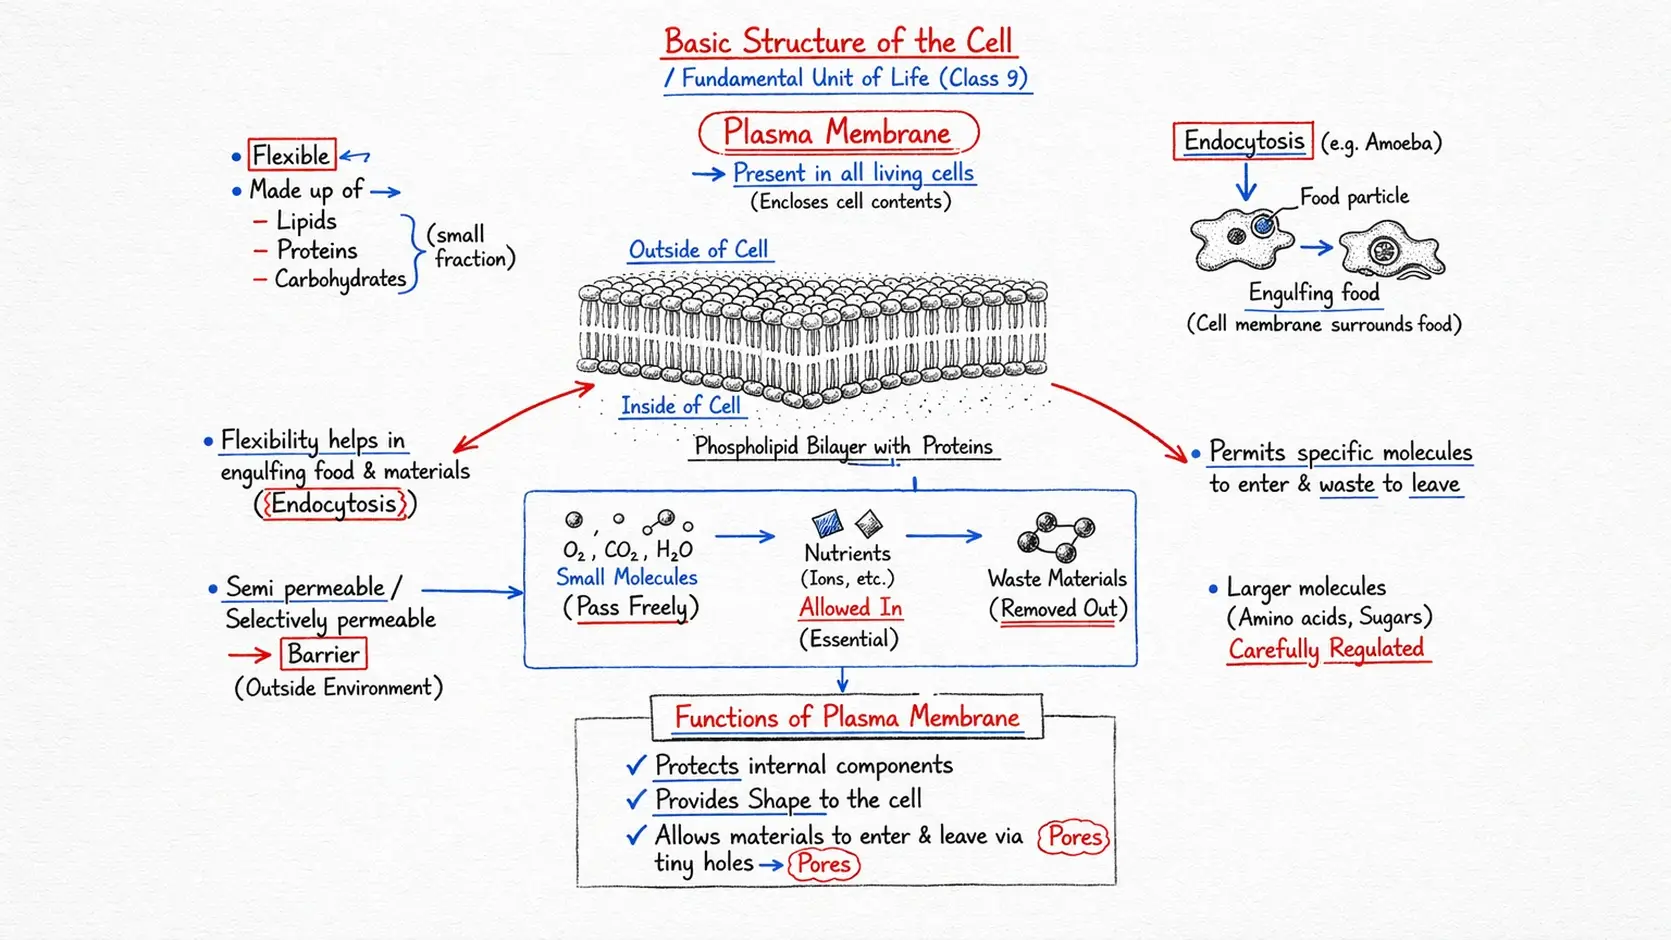 Basic Structure of the Cell
/ Fundamental Unit of Life (Class 9)
Plasma Membrane
→ Present in all living cells
(Encloses cell contents)
• Flexible
• Made up of →
– Lipids
– Proteins
– Carbohydrates
(small
fraction)
Endocytosis (e.g. Amoeba)
Food particle
Engulfing food
(Cell membrane surrounds food)
Outside of Cell
Inside of Cell
Phospholipid Bilayer with Proteins
• Flexibility helps in
engulfing food & materials
(Endocytosis)
• Permits specific molecules
to enter & waste to leave
• Semi permeable /
Selectively permeable
→ Barrier
(Outside Environment)
O₂, CO₂, H₂O
Small Molecules
(Pass Freely)
Nutrients
(Ions, etc.)
Allowed In
(Essential)
Waste Materials
(Removed Out)
• Larger molecules
(Amino acids, Sugars)
Carefully Regulated
Functions of Plasma Membrane
✓ Protects internal components
✓ Provides Shape to the cell
✓ Allows materials to enter & leave via Pores
tiny holes → Pores